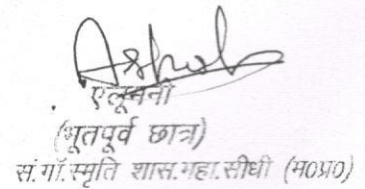 Ashok
एलूमनी
(भूतपूर्व छात्र)
सं.गाँ.स्मृति शास.महा.सीधी (म०प्र०)